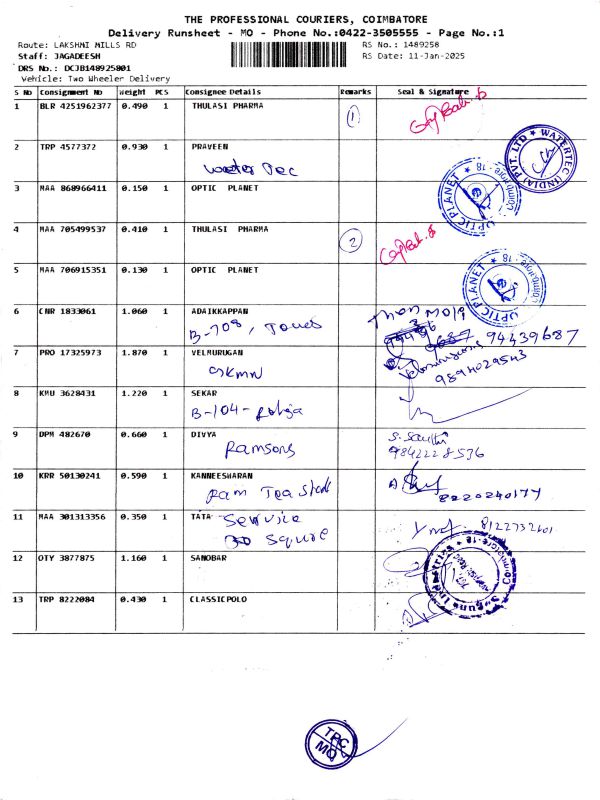 THE PROFESSIONAL COURIERS, COIMBATORE
Delivery Runsheet - MO - Phone No.:0422-3505555 - Page No.:1
Route: LAKSHMI MILLS RD RS No.: 1489258
Staff: JAGADEESH RS Date: 11-Jan-2025
DRS No.: DCJB148925801
Vehicle: Two Wheeler Delivery
S No Consignment No Weight PCS Consignee Details Remarks Seal & Signature
1 BLR 4251962377 0.490 1 THULASI PHARMA 1
2 TRP 4577372 0.930 1 PRAVEEN
WATERTEC (INDIA) PVT. LTD
3 MAA 868966411 0.150 1 OPTIC PLANET
OPTIC PLANET Coimbatore - 18
4 MAA 705499537 0.410 1 THULASI PHARMA 2
5 MAA 706915351 0.130 1 OPTIC PLANET
OPTIC PLANET Coimbatore - 18
6 CNR 1833061 1.060 1 ADAIKKAPPAN
B-708, Tower
94439687
7 PRO 17325973 1.870 1 VELMURUGAN
9894029543
8 KMU 3628431 1.220 1 SEKAR
B-104-
9 DPM 482670 0.660 1 DIVYA
Ramsons
9842228536
10 KRR 50130241 0.590 1 KANNEESHARAN
Ram Tea Stall
8220240177
11 MAA 301313356 0.350 1 TATA Service
Square
8122732601
12 OTY 3877875 1.160 1 SANOBAR
13 TRP 8222084 0.430 1 CLASSICPOLO
Industries Coimbatore-18
TPC
MO